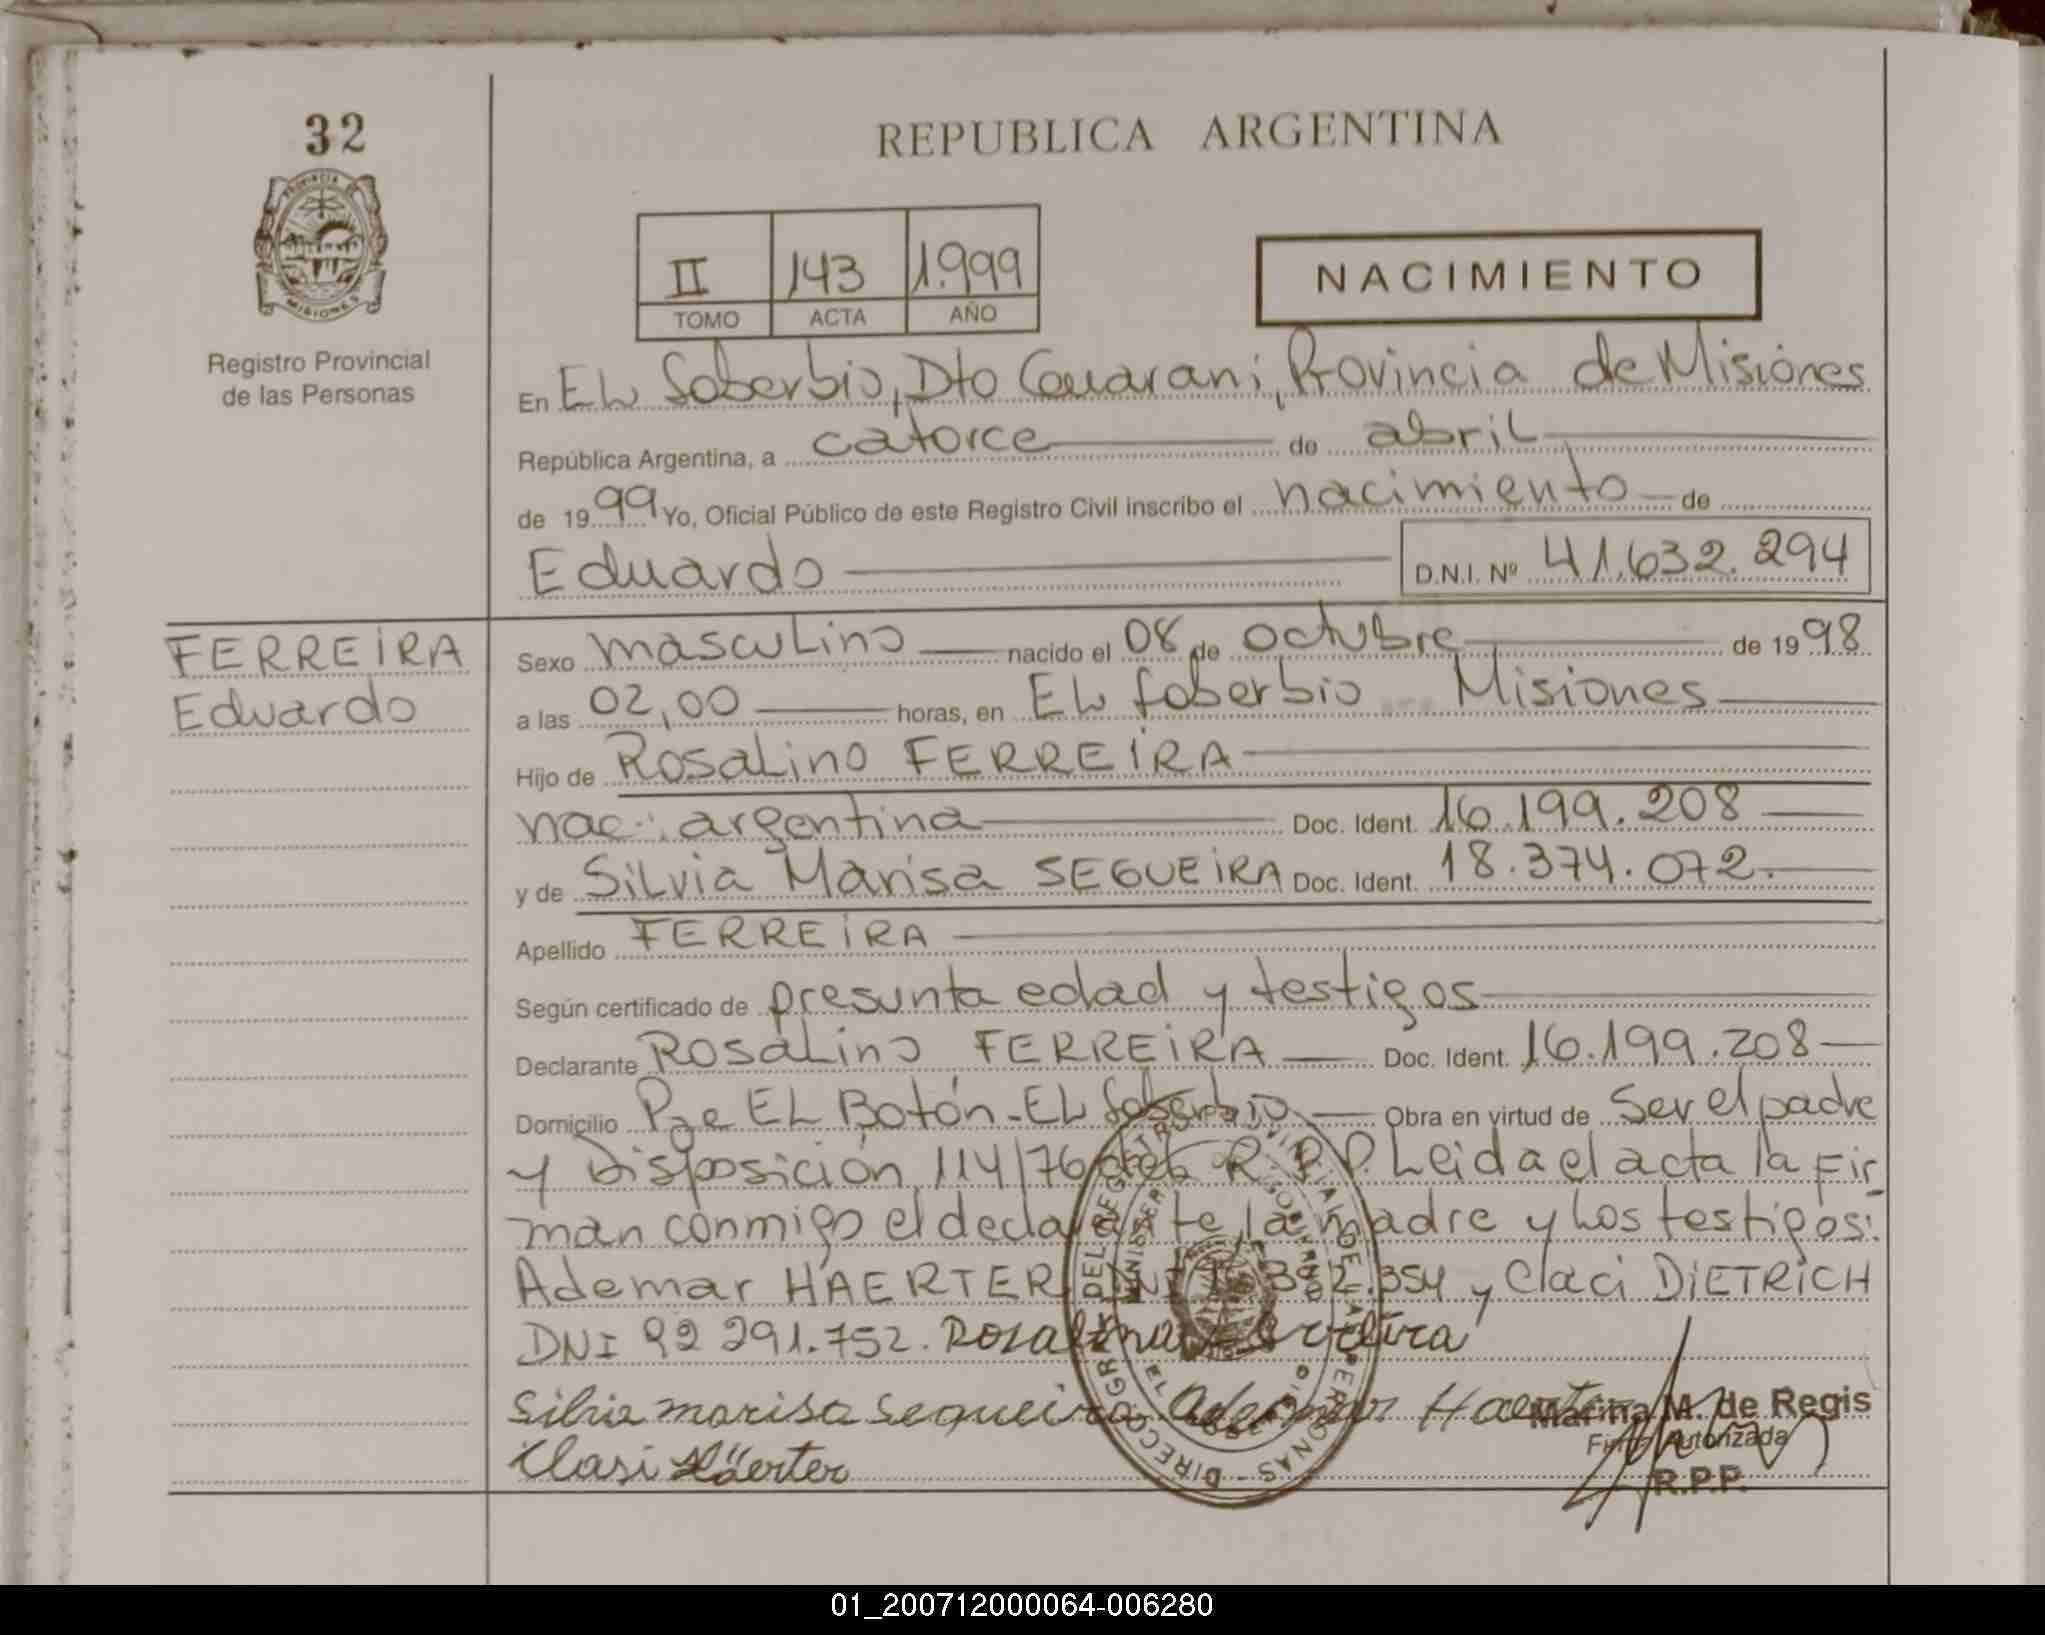 32
PROVINCIA DE
MISIONES
Registro Provincial
de las Personas
REPUBLICA ARGENTINA
II 143 1.999
TOMO ACTA AÑO
NACIMIENTO
En EL Soberbio, Dto Guarani, Provincia de Misiones
República Argentina, a catorce de abril
de 1999 Yo, Oficial Público de este Registro Civil inscribo el nacimiento de
Eduardo D.N.I. Nº 41.632.294
FERREIRA
Eduardo
Sexo masculino nacido el 08 de octubre de 1998
a las 02,00 horas, en EL Soberbio Misiones
Hijo de Rosalino FERREIRA
nac: argentina Doc. Ident. 16.199.208
y de Silvia Marisa SEGUEIRA Doc. Ident. 18.374.072.
Apellido FERREIRA
Según certificado de presunta edad y testigos
Declarante Rosalino FERREIRA Doc. Ident. 16.199.208
Domicilio Pje EL Botón-EL Soberbio Obra en virtud de Ser el padre
y Disposición 114/76 del R.P.P. Leida el acta la fir
man conmigo el declarante, la madre y los testigos:
Ademar HAERTER DNI .354 y Claci DIETRICH
DNI 92 291.752. Rosalino Ferreira
Silvia marisa Sequeira Ademar Haerter
Clasi Häerter
Marina M. de Regis
Firma Autorizada
R.P.P.
01_200712000064-006280